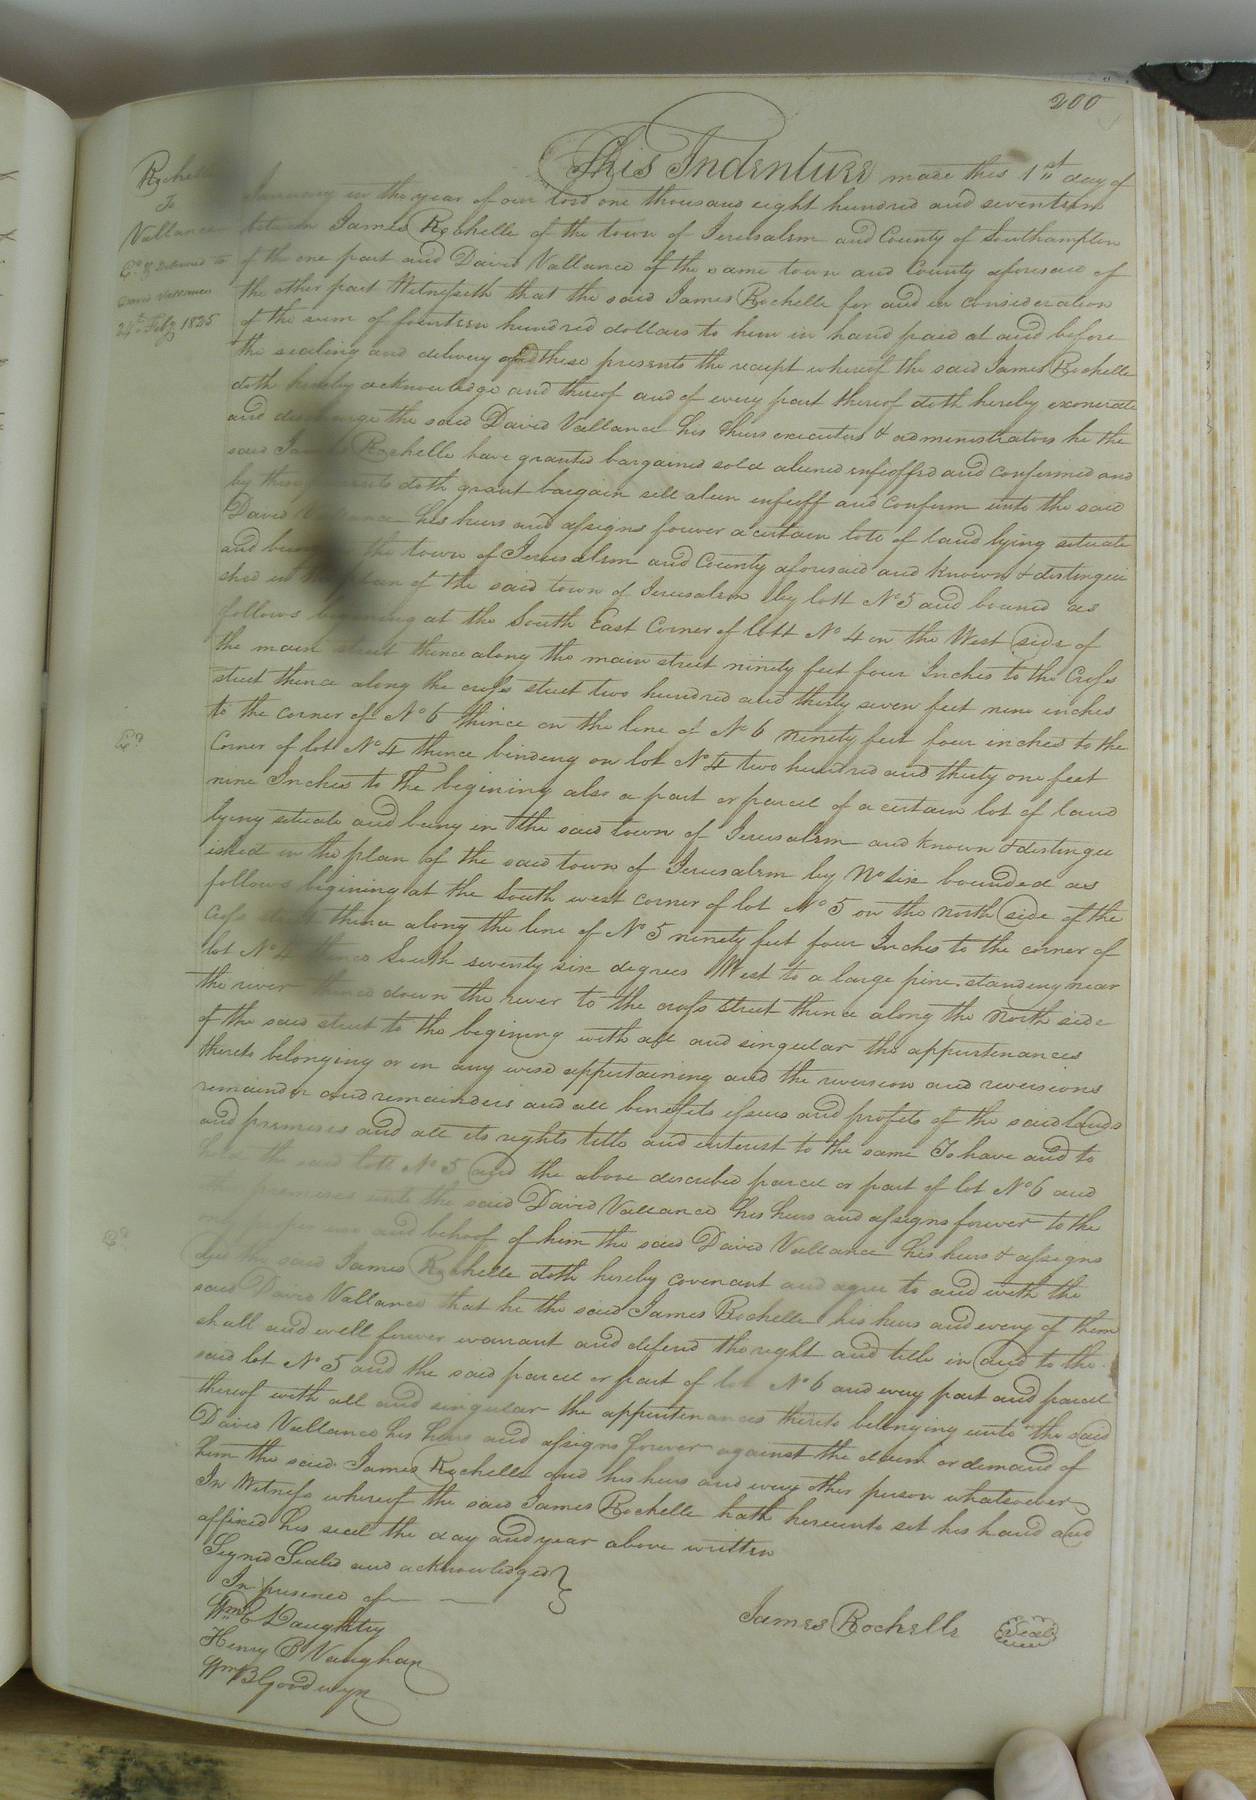 200
Rochelle
To
Vallance
Ex. & Delivered to
David Vallance
24th Feby 1825
This Indenture made this 1st day of
January in the year of our lord one thousand eight hundred and seventeen
between James Rochelle of the town of Jerusalem and County of Southampton
of the one part and David Vallance of the same town and County aforesaid of
the other part Witnesseth that the said James Rochelle for and in consideration
of the sum of fourteen hundred dollars to him in hand paid at and before
the sealing and delivery of these presents the receipt whereof the said James Rochelle
doth hereby acknowledge and thereof and of every part thereof doth hereby exonerate
and discharge the said David Vallance his heirs executors & administrators he the
said James Rochelle have granted bargained sold aliened infeoffed and confirmed and
by these presents doth grant bargain sell alien enfeoff and confirm unto the said
David Vallance his heirs and assigns forever a certain lott of land lying situate
and being in the town of Jerusalem and County aforesaid and known & distingui
shed in the plan of the said town of Jerusalem by lott No 5 and bouned as
follows begining at the South East Corner of lott No 4 on the West side of
the main street thence along the main street ninety feet four Inches to the Cross
street thence along the cross street two hundred and thirty seven feet nine inches
to the corner of No 6 thince on the line of No 6 ninety feet four inches to the
Corner of lot No 4 thence binding on lot No 4 two hundred and thirty one feet
nine Inches to the begining also a part or parcel of a certain lot of land
lying situate and being in the said town of Jerusalem and known & distingu
ished in the plan of the said town of Jerusalem by No six bounded as
follows begining at the South west corner of lot No 5 on the north side of the
Cross street thence along the line of No 5 ninety feet four Inches to the corner of
lot No 4 thence South seventy six degrees West to a large pine standing near
the river thence down the river to the cross street thence along the North side
of the said street to the begining with all and singular the appurtenances
thereto belonging or in any wise appertaining and the reversion and reversions
remainder and remainders and all benefits issues and profits of the said lands
and premises and all its rights title and interest to the same To have and to
hold the said lott No 5 and the above described parcel or part of lot No 6 and
the premises unto the said David Vallance his heirs and assigns forever to the
only proper use and behoof of him the said David Vallance his heirs & assigns
And the said James Rochelle doth hereby covenant and agree to and with the
said David Vallance that he the said James Rochelle his heirs and every of them
shall and will forever warrant and defend the right and title in and to the
said lot No 5 and the said parcel or part of lot No 6 and every part and parcel
thereof with all and singular the appurtenances thereto belonging unto the said
David Vallance his heirs and assigns forever against the claim or demand of
him the said James Rochelle and his heirs and every other person whatsoever
In Witness whereof the said James Rochelle hath hereunto set his hand and
affixed his seal the day and year above written
Signed Sealed and acknowledged
In presence of
Wm C Daughtry
Henry B Vaughan
Wm B Goodwyn
James Rochelle Seal